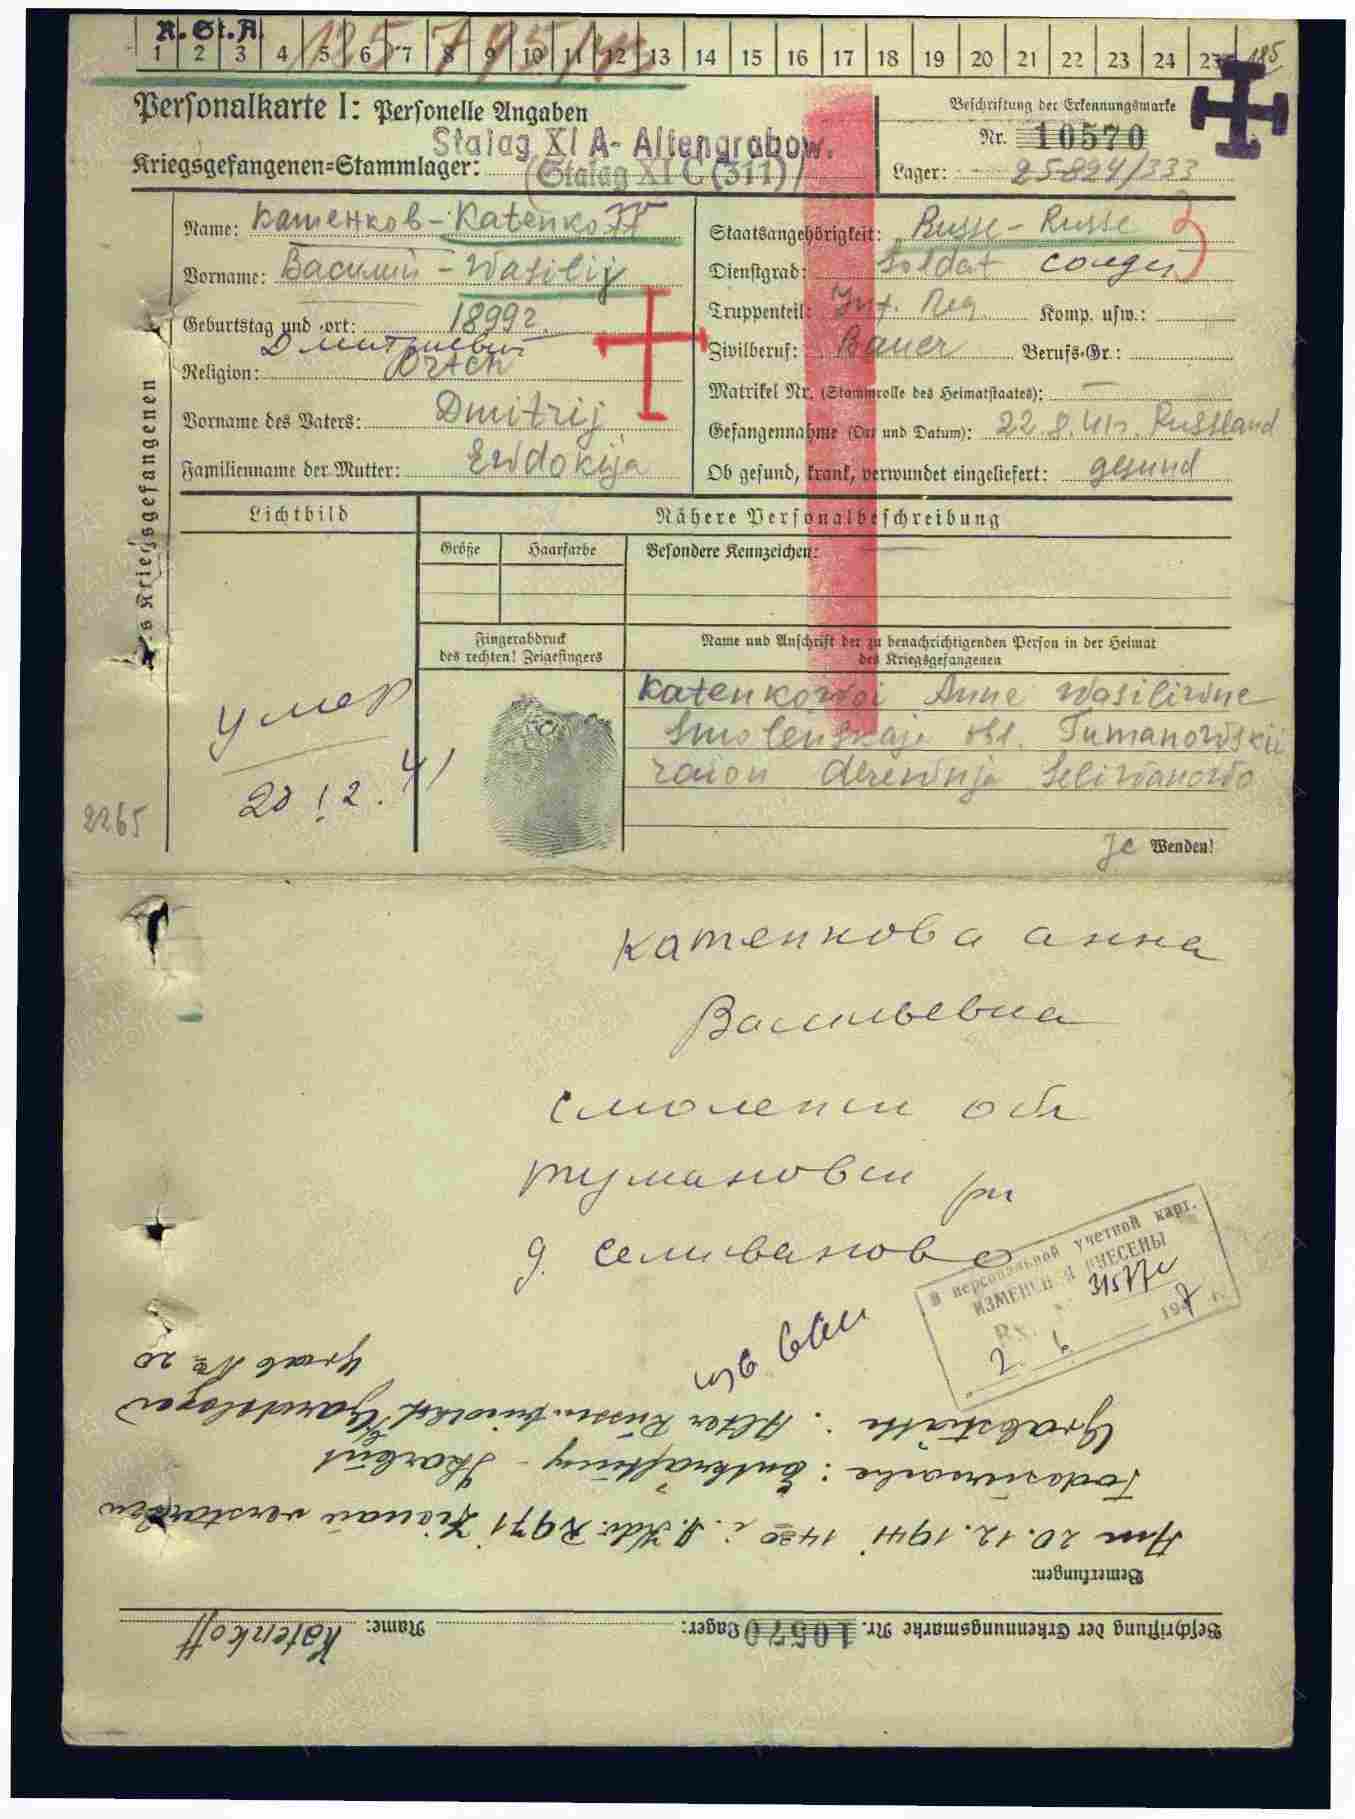 R. St. A.
1 2 3 4 5 6 7 8 9 10 11 12 13 14 15 16 17 18 19 20 21 22 23 24 25
Personalkarte I: Personelle Angaben
Stalag XI A - Altengrabow.
Kriegsgefangenen=Stammlager: (Stalag XI C (311))
Beschriftung der Erkennungsmarke
Nr. 10570
Lager: 25824/333
Name: Катенков - Katenkoff
Vorname: Василий - Wasilij
Geburtstag und -ort: 1899г.
Дмитриевич
Religion:
Vorname des Vaters: Dmitrij
Familienname der Mutter: Ewdokija
Staatsangehörigkeit: Russe - Russe
Dienstgrad: Soldat
Truppenteil: Inf. Reg. Komp. usw.:
Zivilberuf: Bauer Berufs-Gr.:
Matrikel Nr. (Stammrolle des Heimatstaates): —
Gefangennahme (Ort und Datum): 22.8.41г. Russland
Ob gesund, krank, verwundet eingeliefert: gesund
Kriegsgefangenen
Lichtbild
Nähere Personalbeschreibung
Größe Haarfarbe Besondere Kennzeichen:
Fingerabdruck
des rechten! Zeigefingers
Name und Anschrift der zu benachrichtigenden Person in der Heimat
des Kriegsgefangenen
Katenkowoi Anne Wasiliwne
Smolenskaja obl. Tumanowskii
raion derewnja Seliwanowo
умер
20 12. 41
2265
Wenden!
Катенкова анна
Васильевна
смоленск обл
тумановск рн
д. селиваново
В персональной учетной карт.
ИЗМЕНЕНИЯ ВНЕСЕНЫ
31577с
2. 6. 1947 г.
Beschriftung der Erkennungsmarke Nr. 10570 Lager: Name: Katenkoff
Bemerkungen:
Am 20.12.1941 14 30 i. verstorben
Todesursache: Entkräftung - Skorbut
Grabstätte: Alter Russenfriedhof Gardelegen
Grab No 20